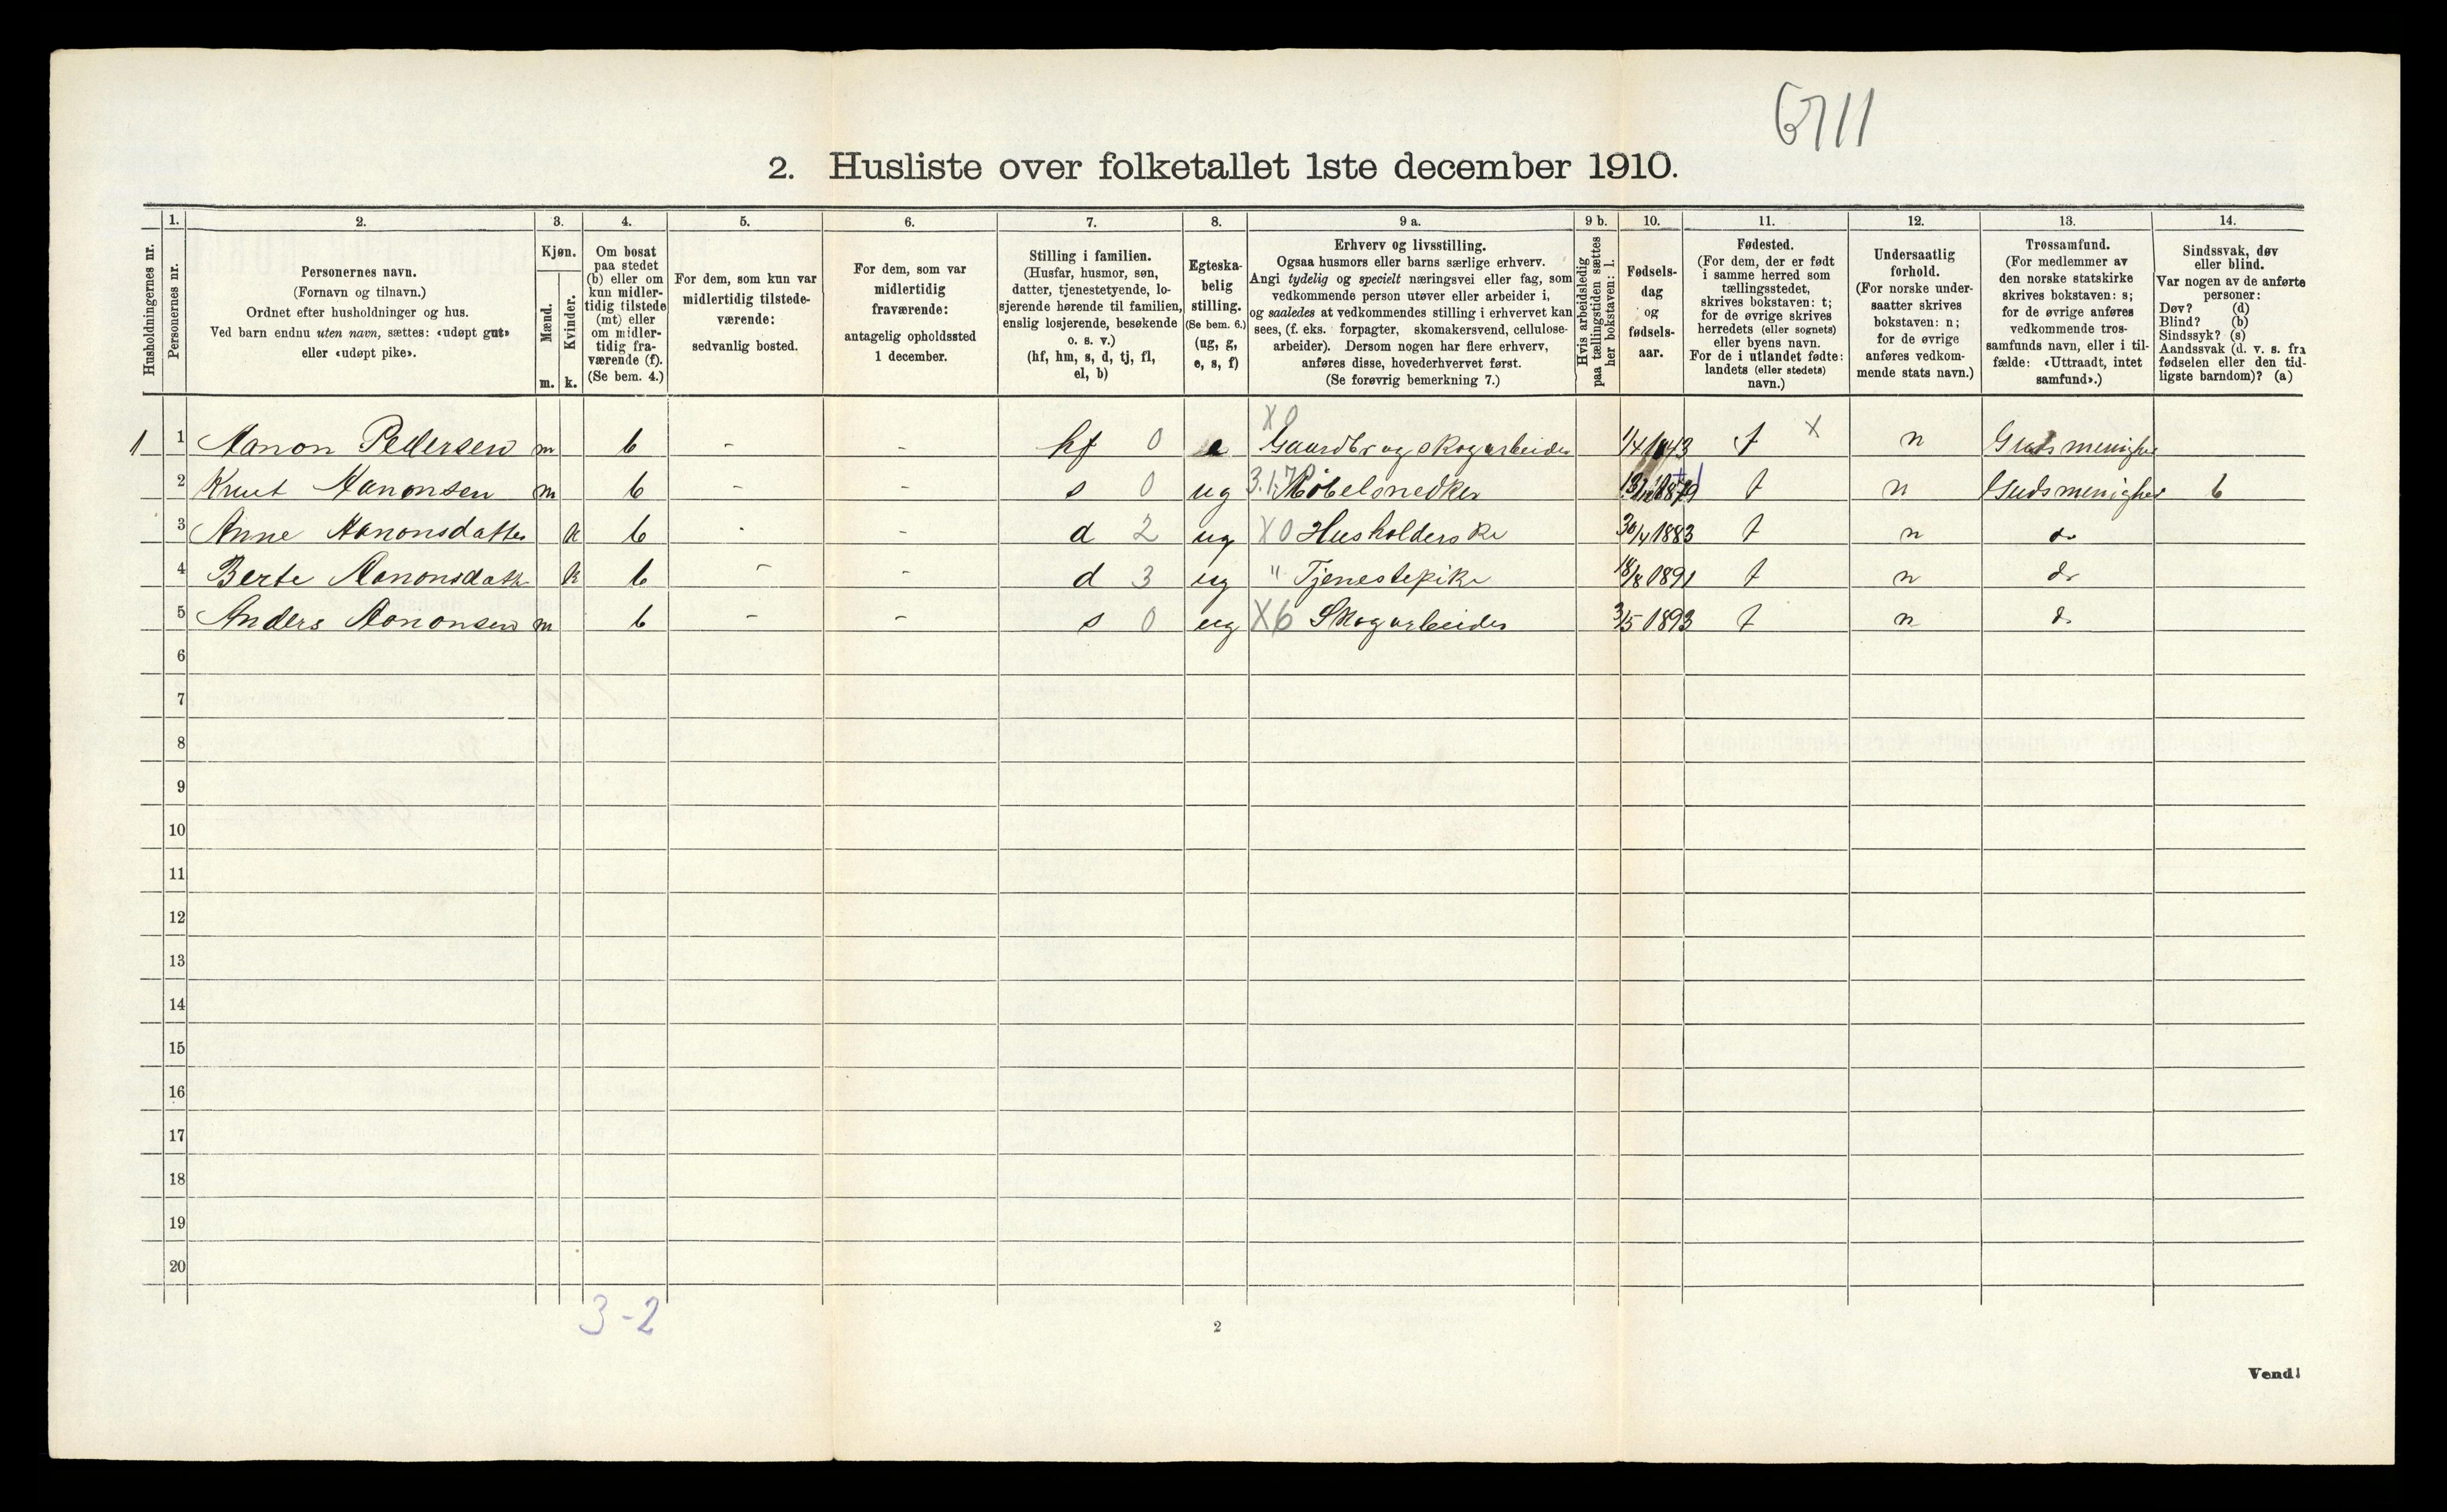 6711
2. Husliste over folketallet 1ste december 1910.
Husholdningernes nr.
1.
Personernes nr.
2.
Personernes navn.
(Fornavn og tilnavn.)
Ordnet efter husholdninger og hus.
Ved barn endnu uten navn, sættes: «udøpt gut»
eller «udøpt pike».
3.
Kjøn.
Mænd.
Kvinder.
m. k.
4.
Om bosat
paa stedet
(b) eller om
kun midler-
tidig tilstede
(mt) eller
om midler-
tidig fra-
værende (f).
(Se bem. 4.)
5.
For dem, som kun var
midlertidig tilstede-
værende:
sedvanlig bosted.
6.
For dem, som var
midlertidig
fraværende:
antagelig opholdssted
1 december.
7.
Stilling i familien.
(Husfar, husmor, søn,
datter, tjenestetyende, lo-
sjerende hørende til familien,
enslig losjerende, besøkende
o. s. v.)
(hf, hm, s, d, tj, fl,
el, b)
8.
Egteska-
belig
stilling.
(Se bem. 6.)
(ug, g,
e, s, f)
9 a.
Erhverv og livsstilling.
Ogsaa husmors eller barns særlige erhverv.
Angi tydelig og specielt næringsvei eller fag, som
vedkommende person utøver eller arbeider i,
og saaledes at vedkommendes stilling i erhvervet kan
sees, (f. eks. forpagter, skomakersvend, cellulose-
arbeider). Dersom nogen har flere erhverv,
anføres disse, hovederhvervet først.
(Se forøvrig bemerkning 7.)
9 b.
Hvis arbeidsledig
paa tællingstiden sættes
her bokstaven: l.
10.
Fødsels-
dag
og
fødsels-
aar.
11.
Fødested.
(For dem, der er født
i samme herred som
tællingsstedet,
skrives bokstaven: t;
for de øvrige skrives
herredets (eller sognets)
eller byens navn.
For de i utlandet fødte:
landets (eller stedets)
navn.)
12.
Undersaatlig
forhold.
(For norske under-
saatter skrives
bokstaven: n;
for de øvrige
anføres vedkom-
mende stats navn.)
13.
Trossamfund.
(For medlemmer av
den norske statskirke
skrives bokstaven: s;
for de øvrige anføres
vedkommende tros-
samfunds navn, eller i til-
fælde: «Uttraadt, intet
samfund».)
14.
Sindssvak, døv
eller blind.
Var nogen av de anførte
personer:
Døv? (d)
Blind? (b)
Sindssyk? (s)
Aandssvak (d. v. s. fra
fødselen eller den tid-
ligste barndom)? (a)
X 0
1 1 Aanon Pedersen m b - - hf 0 e Gaardbr og skogarbeider 1/4 1843 t X n Gudsmenighet
2 Knut Aanonsen m b - - s 0 ug Møbelsnedker t n Gudsmenighet b
3 Anne Aanonsdatter k b - - d 2 ug X 0 Husholderske 30/4 1883 t n do
4 Berte Aanonsdatter k b - - d 3 ug " Tjenestepike 18/8 1891 t n do
5 Anders Aanonsen m b - - s 0 ug X6 Skogarbeider 3/5 1893 t n do
6
7
8
9
10
11
12
13
14
15
16
17
18
19
20
3-2
2
Vend!